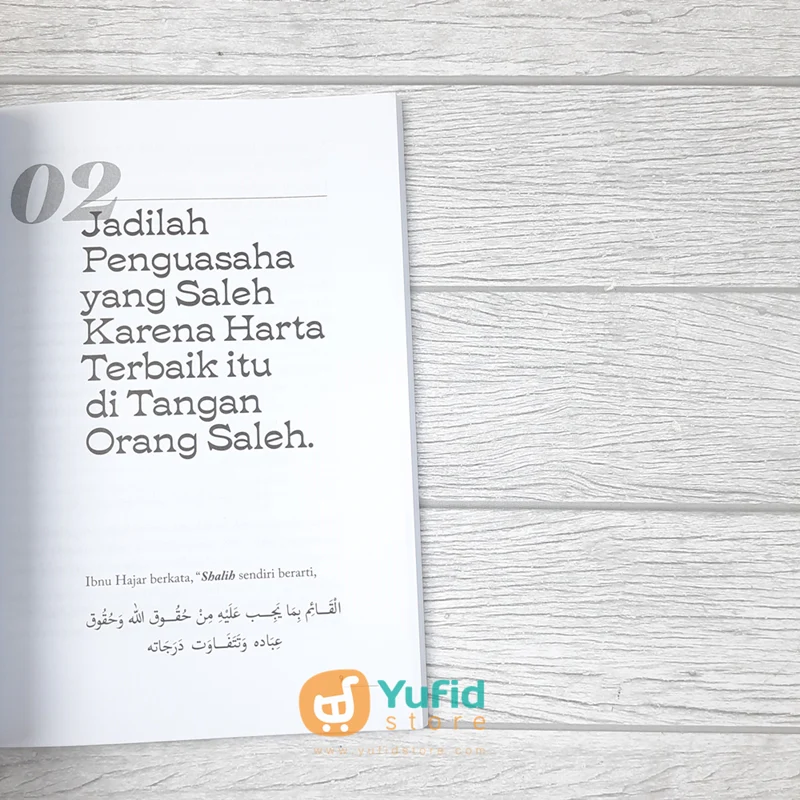 02
Jadilah
Penguasaha
yang Saleh
Karena Harta
Terbaik itu
di Tangan
Orang Saleh.
Ibnu Hajar berkata, “Shalih sendiri berarti,
الْقَـائِم بِمَا يَجِـب عَلَيْهِ مِنْ حُقُـوق الله وَحُقُوق
عِبَاده وَتَتَفَـاوَت دَرَجَاته
Yufid
store
www.yufidstore.com